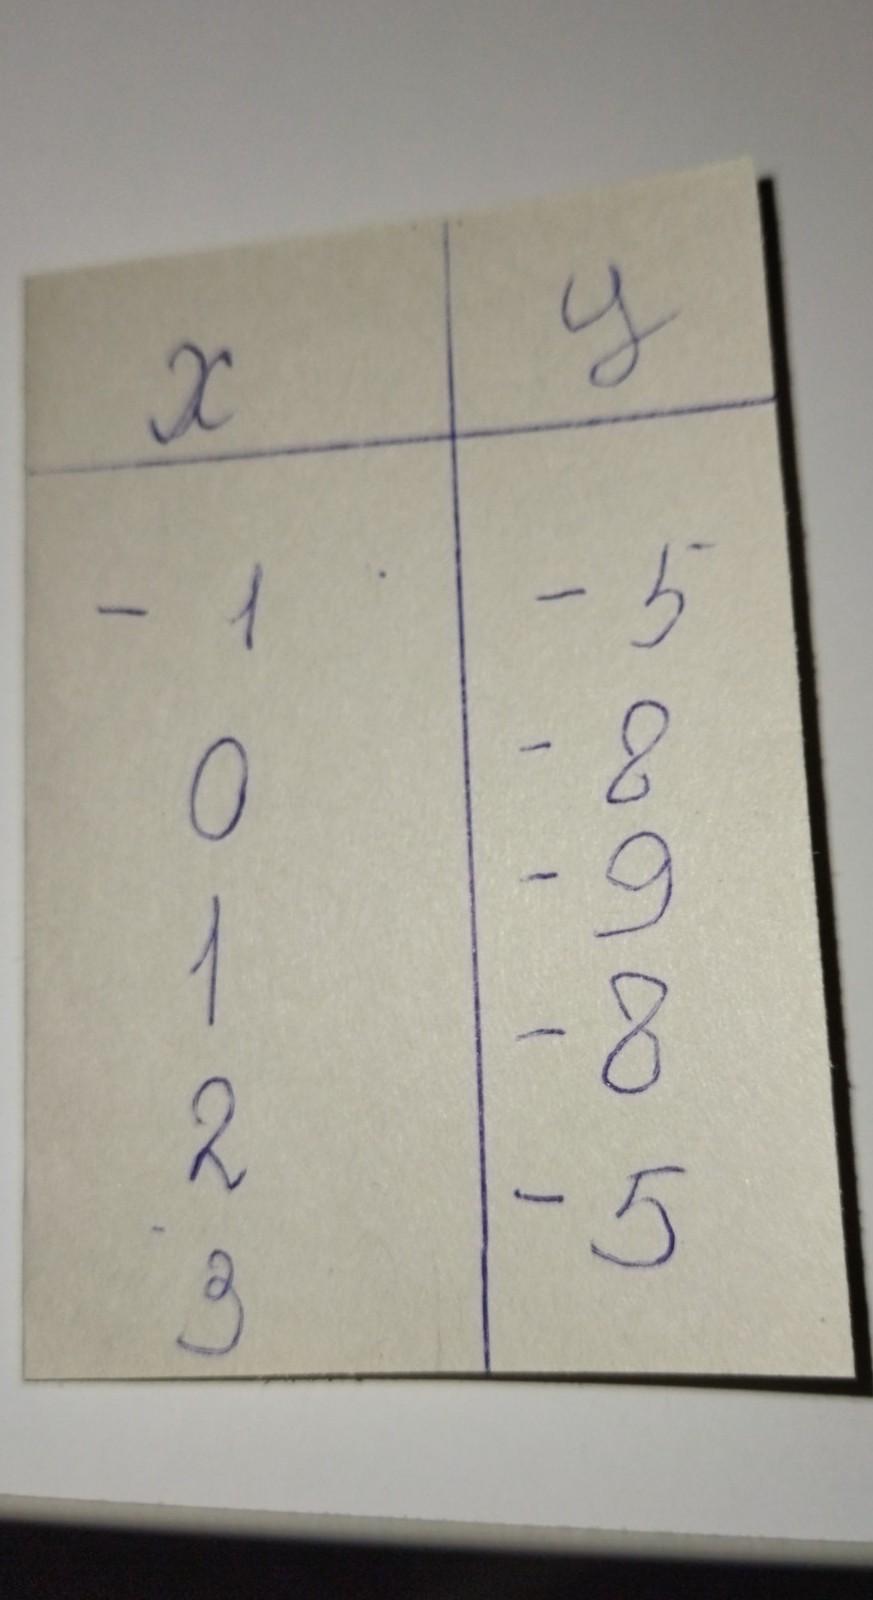 x y
- 1 - 5
0 - 8
1 - 9
2 - 8
3 - 5